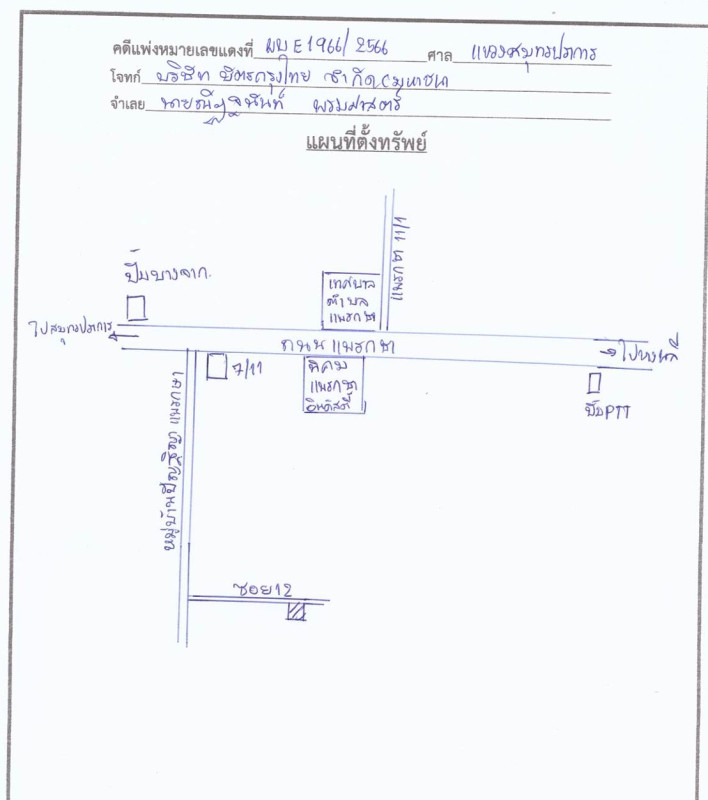 คดีแพ่งหมายเลขแดงที่ ผบE1966/2566 ศาล แขวงสมุทรปราการ
โจทก์ บริษัท บัตรกรุงไทย จำกัด(มหาชน
จำเลย พรมศาสตร์
แผนที่ตั้งทรัพย์
แพรกษา 11/1
ปั๊มบางจาก.
เทศบาล
ตำบล
แพรกษา
ไปสมุทรปราการ
ถนน แพรกษา
ไปบางพลี
7/11
นิคม
แพรกษา
อินดัสตรี้
ปั๊มPTT
หมู่บ้านปัญฐิญา แพรกษา
ซอย12